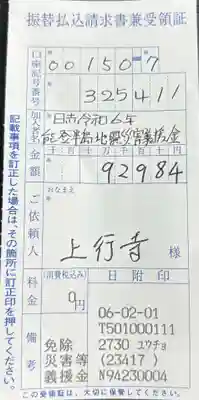 振替払込請求書兼受領証
口座記号番号
00150-7
325411
加入者名
日赤令和6年
能登半島地震災害義援金
金額
千 百 十 万 千 百 十 円
92984
ご依頼人
おなまえ
上行寺 様
料金
(消費税込み)
0円
備考
免除
災害等
義援金
日附印
06-02-01
T501000111
2730 ユウチョ
(23417 )
N94230004
記載事項を訂正した場合は、その箇所に訂正印を押してください。
この受領証は、大切に保管してください。